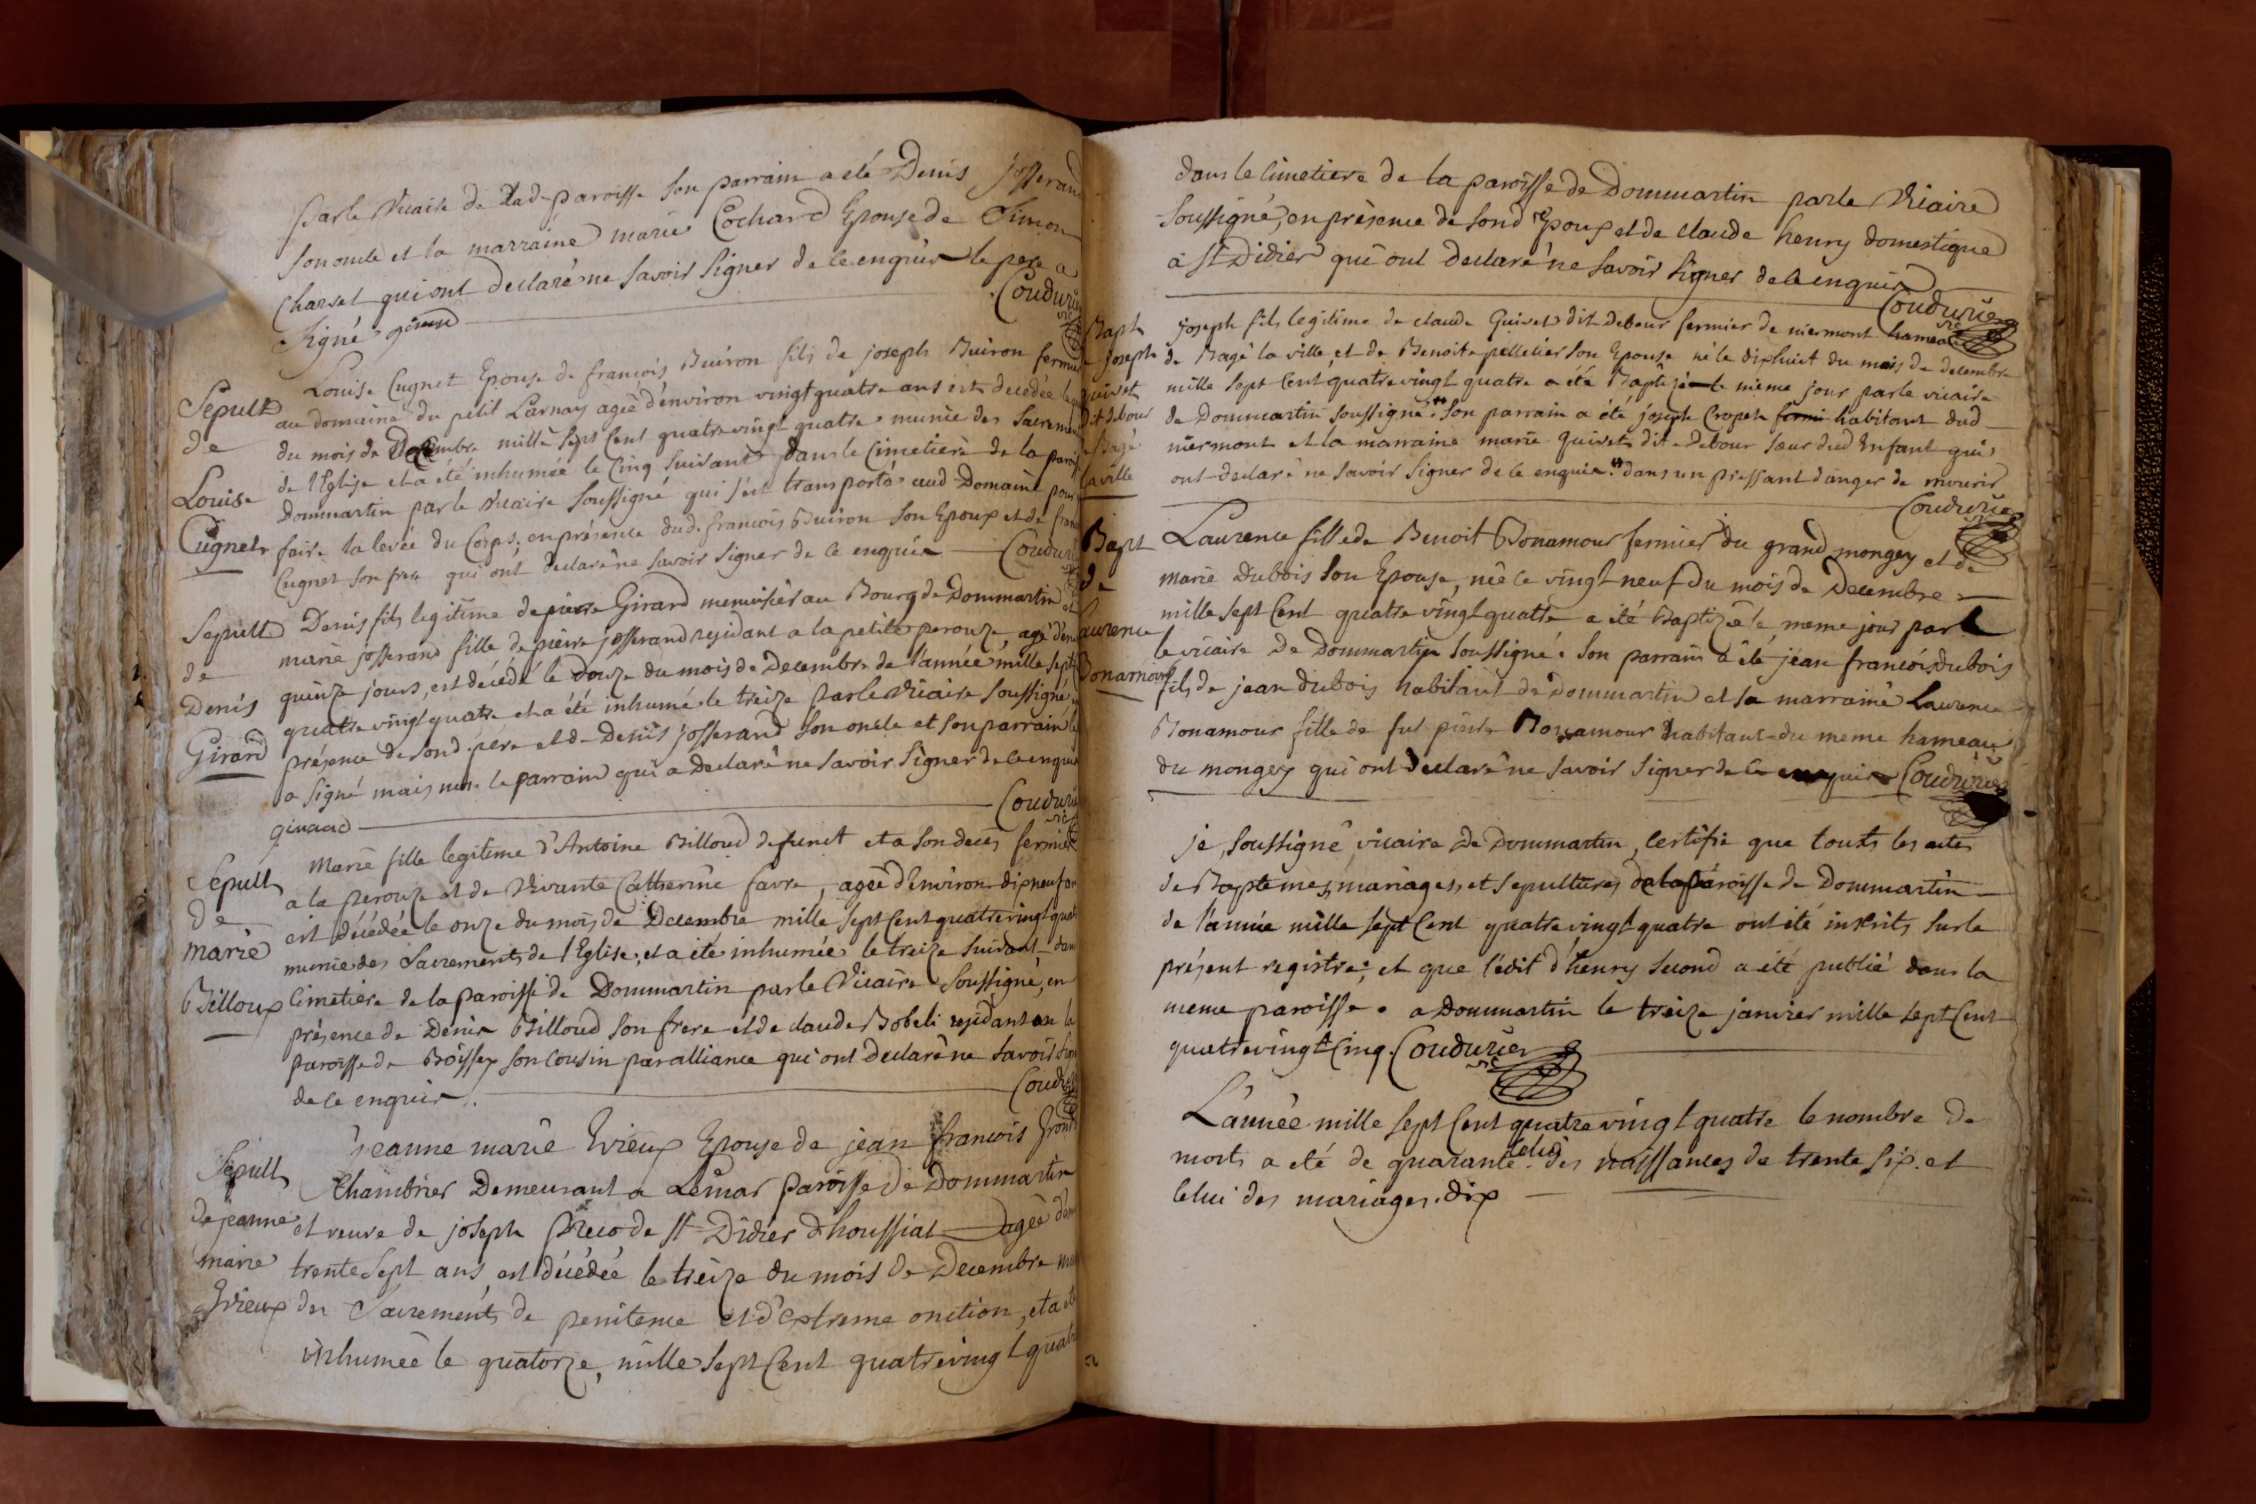 par le vicaire de lad paroisse son parrain a été Denis josserand
son oncle et la marraine marie Cochard Epouse de Simon
Charvet qui ont déclaré ne savoir signer de ce enquis le pere a
signé girard
Coudurier
vic
Sepult
de
Louise
Cugnet
Louise Cugnet Epouse de françois Buiron fils de joseph Buiron fermier
au domaine du petit Larnay agée d'environ vingt quatre ans est decedée le
du mois de Decembre mille sept Cent quatre vingt quatre munie des Sacremens
de l'Eglise et a été inhumée le Cinq suivant dans le Cimetiere de la parois
Dommartin par le vicaire soussigné qui s'est transporté aud Domaine pour
faire la levée du Corps, en présence dud. françois Buiron son Epoux et de
Cugnet son frere qui ont déclaré ne savoir signer de ce enquis
Coudurier
Sepult
de
Denis
Girard
Denis fils legitime de pierre Girard menuisier au Bourg de Dommartin et
marie josserand fille de pierre josserand residant a la petite perouze, agé d'env
quinze jours, est décédé le Douze du mois de Decembre de l'année mille sept
quatre vingt quatre et a été inhumé le treize par le vicaire soussigné
présence de sond. pere et de Denis josserand son oncle et son parrain le
a signé mais non le parrain qui a declaré ne savoir signer de ce enquis
girard
Coudurier
vic
Sepult
de
marie
Billoux
Marie fille legitime d'Antoine Billoud defunct et a son decès fermier
a la perouze et de vivante Catherine favre, agée d'Environ dix neuf an
est décédée le onze du mois de Decembre mille sept Cent quatre vingt quat
munie des Sacrements de l'Eglise, et a été inhumée le treize suivant dan
Cimetiere de la paroisse de Dommartin par le vicaire soussigné, en
présence de Denis Billoud son frere et de claude Bobeli residant en la
paroisse de Boissey son Cousin par alliance qui ont declaré ne savoir sign
de ce enquis.
Coudurier
Sepult
de jeanne
marie
Evieux
jeanne marie Evieux Epouse de jean françois
Chambrier Demeurant a Lemar paroisse de Dommartin
et veuve de joseph de St Didier d'houssiat agée d'en
trente sept ans est décédée le treize du mois de Decembre mun
des Sacrements de penitence et d'extreme onction, et a été
inhumée le quatorze, mille sept Cent quatre vingt quatre
dans le Cimetiere de la paroisse de Dommartin par le vicaire
soussigné, en présence de sond Epoux et de claude henry domestique
a St Didier qui ont declaré ne savoir signer de ce enquis
Coudurier
vic
Bapt
de joseph
quivet
dit debour
de Bagé
la ville
joseph fils legitime de claude Quivet dit debour fermier de niermont hameau
de Bagé la ville et de Benoite pelletier son Epouse né le dixhuit du mois de decembre
mille sept Cent quatre vingt quatre a été Baptisé le meme jour par le vicaire
de Dommartin soussigné. son parrain a été joseph Cropet habitant dud
niermont et la marraine marie quivet dite Debour soeur dud Enfant qui
ont declaré ne savoir signer de ce enquis. dans un pressant danger de mourir
Coudurier
vic
Bapt
de
Laurence
Bonamour
Laurence fille de Benoit Bonamour fermier du grand mongey et de
marie Dubois son Epouse, née le vingt neuf du mois de Decembre
mille sept Cent quatre vingt quatre a été Baptizée le meme jour par
le vicaire de Dommartin soussigné. son parrain a été jean françois dubois
fils de jean dubois habitant de Dommartin et sa marraine Laurence
Bonamour fille de fut pierre Bonamour habitant du meme hameau
du mongey qui ont declaré ne savoir signer de ce enquis Coudurier
je soussigné vicaire de Dommartin, Certifie que touts les actes
de Baptêmes, mariages, et sepultures de la paroisse de Dommartin
de l'année mille sept Cent quatre vingt quatre ont été inscrits sur le
présent registre, et que l'édit d'henry second a été publié dans la
meme paroisse. a Dommartin le treize janvier mille sept Cent
quatre vingt Cinq. Coudurier
vic
L'année mille sept Cent quatre vingt quatre le nombre de
morts a été de quarante. celui des naissances de trente six. et
Celui des mariages. dix